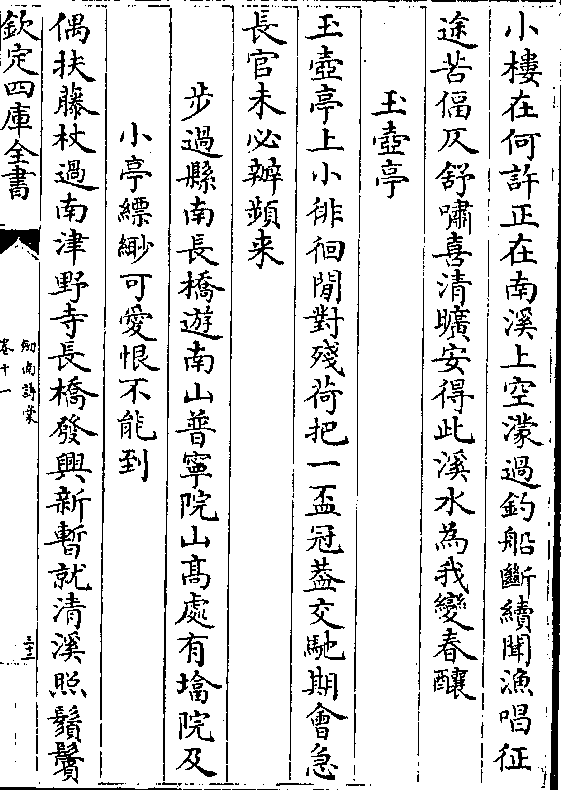 小樓在何許正在南溪上空濛過釣船斷續聞漁唱征
途苦偪仄舒嘯喜清曠安得此溪水為我變春釀
玉壺亭
玉壺亭上小徘徊閒對殘荷把一盃冠蓋交馳期會急
長官未必辦頻来
步過縣南長橋遊南山普寧院山髙處有墖院及
小亭縹緲可愛恨不能到
偶扶藤杖過南津野寺長橋發興新暫就清溪照鬚鬢
欽定四庫全書
劍南詩稾
卷十一